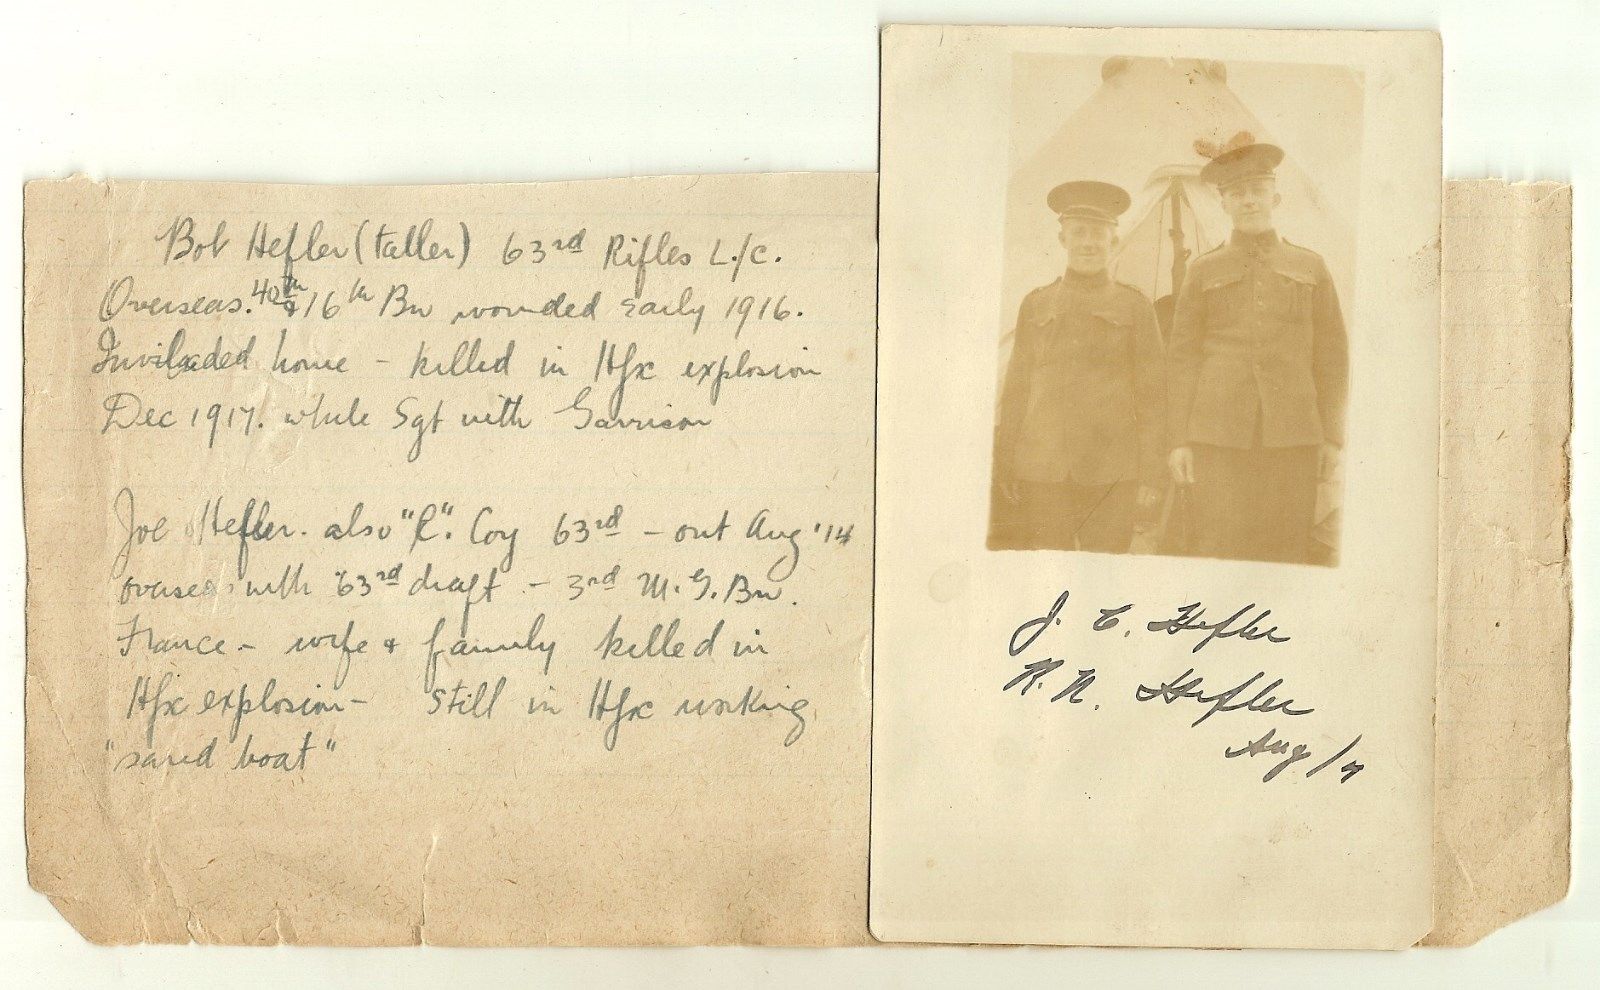 Bob Hefler (taller) 63rd Rifles L/c.
Overseas. 40th & 16th Bn wounded early 1916.
Invilaeded home - killed in Hfx explosion
Dec 1917. while Sgt with Garrison
Joe Hefler. also "C". Coy 63rd - out Aug '14
overseas with 63rd draft - 3rd M.G. Bn.
France - wife & family killed in
Hfx explosion - still in Hfx working
"sand boat"
J. C. Hefler
R. N. Hefler
Aug/